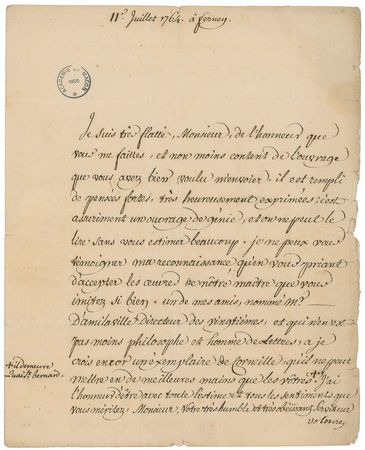 11e Juillet 1764. à ferney
ACADÉMIE DE MACON
1805
Je suis tres flatté, Monsieur, de l'honneur que
vous me faittes, et non moins content de l'ouvrage
que vous avez bien voulu m'envoier. il est rempli
de pensées fortes, très heureusement exprimées: c'est
assurément un ouvrage de génie, et on ne peut le
lire sans vous estimer beaucoup. je ne peux vous
témoigner ma reconnaissance qu'en vous priant
d'accepter les œuvres de nôtre maître que vous
imitez si bien. un de mes amis, nommé Mr
Damilaville Directeur des vingtièmes, et qui n'en est
pas moins philosophe et homme de Lettres, a je
crois encor un exemplaire de Corneille, qu'il ne peut
mettre en de meilleures mains que les vôtres. J'ai
l'honneur d'être avec toute l'estime et tous les sentiments que
vous méritez, Monsieur, Vôtre très humble et très obéissant serviteur
Voltaire
il demeure
Quai St. bernard.